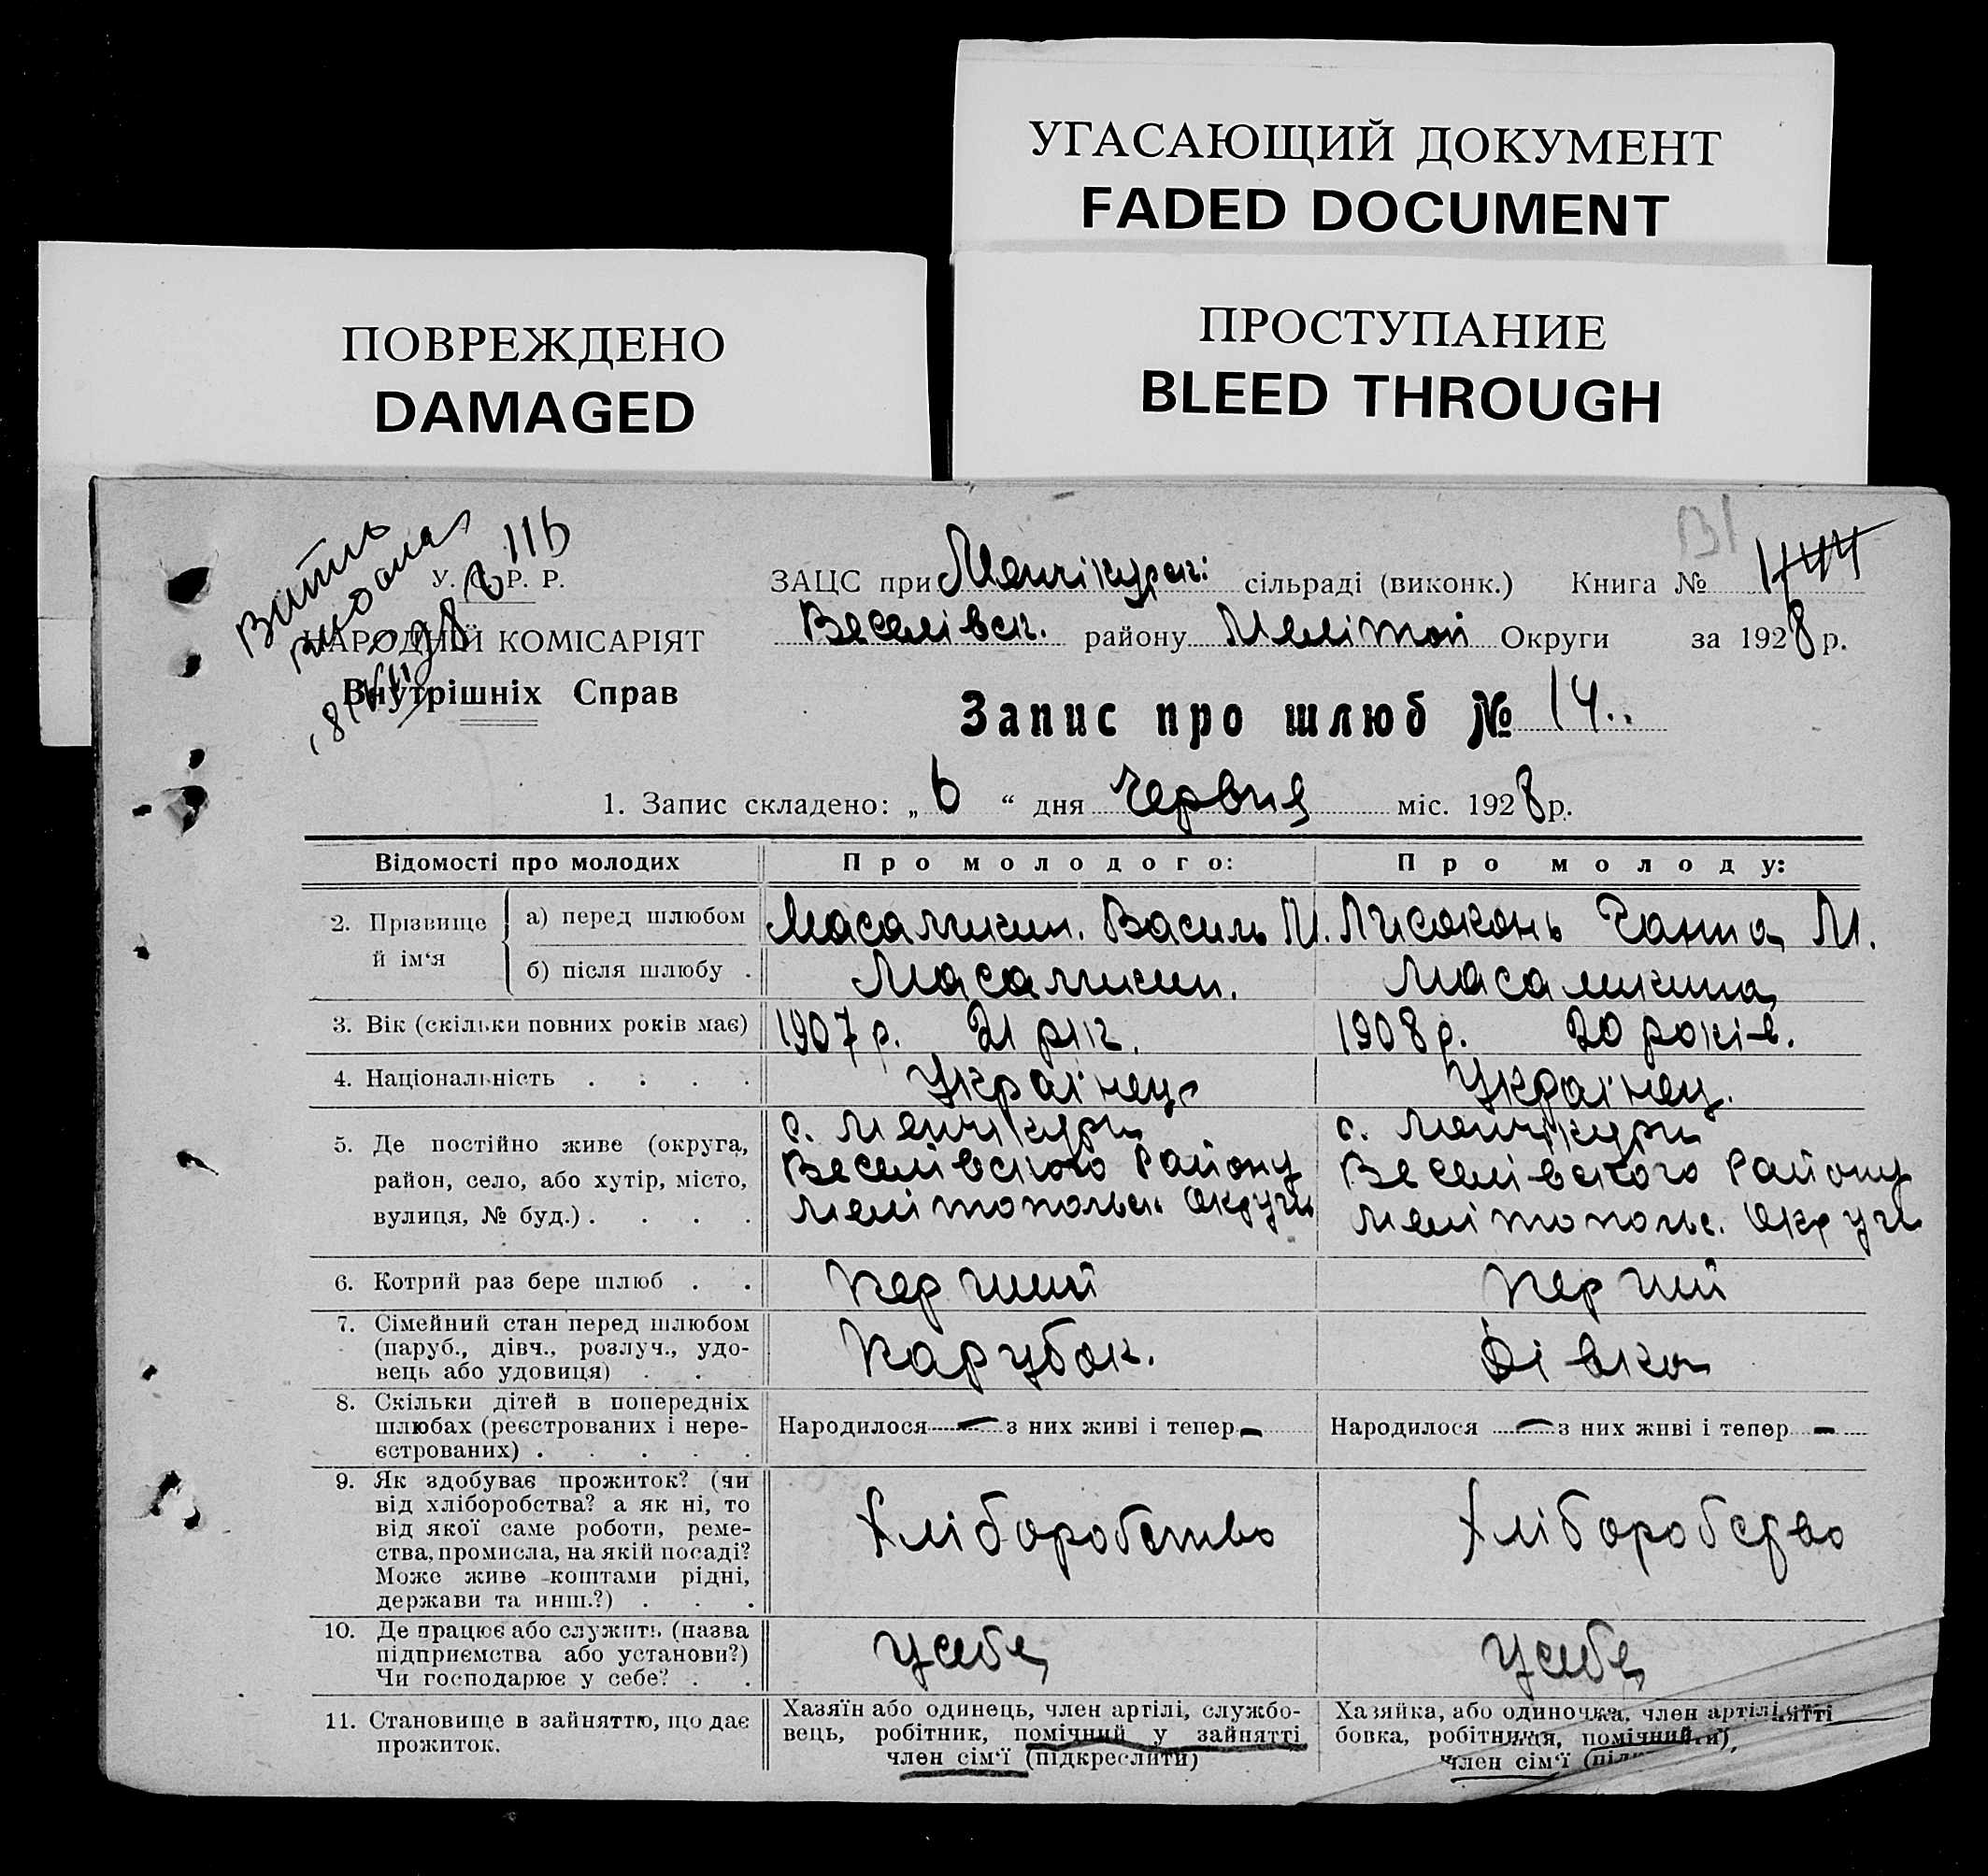 УГАСАЮЩИЙ ДОКУМЕНТ
FADED DOCUMENT
ПОВРЕЖДЕНО
DAMAGED
ПРОСТУПАНИЕ
BLEED THROUGH
У. С. Р. Р.
НАРОДНІЙ КОМІСАРІЯТ
Внутрішніх Справ
ЗАЦС при Менчікурск: сільраді (виконк.) Книга №
Веселівск. району Мелітоп Округи за 1928 р.
Запис про шлюб № 14..
1. Запис складено: „ 6 “ дня Червня міс. 1928 р.
Відомості про молодих Про молодого: Про молоду:
2. Прізвище й ім‘я а) перед шлюбом Масаликин. Василь М. Лисоконь Ганна М.
б) після шлюбу . Масаликин. Масаликина
3. Вік (скільки повних років має) 1907 р. 21 рік. 1908 р. 20 років.
4. Національність . . . . Українец Українец.
5. Де постійно живе (округа, район, село, або хутір, місто, вулиця, № буд.) . . . .
с. Менчікури
Веселівського Району
Мелітопольск. Округи
с. Менчікури
Веселівського Району
Мелітопольс. Округи
6. Котрий раз бере шлюб . . Перший Перший
7. Сімейний стан перед шлюбом
(паруб., дівч., розлуч., удо-
вець або удовиця) . . .
Парубок. Дівка
8. Скільки дітей в попередніх
шлюбах (реєстрованих і нере-
єстрованих) . . . . .
Народилося — з них живі і тепер — Народилося — з них живі і тепер —
9. Як здобуває прожиток? (чи
від хліборобства? а як ні, то
від якої саме роботи, реме-
ства, промисла, на якій посаді?
Може живе коштами рідні,
держави та инш.?) . . .
Хліборобство Хліборобство
10. Де працює або служить (назва
підприємства або установи?)
Чи господарює у себе? . .
у себе у себе
11. Становище в зайняттю, що дає
прожиток.
Хазяїн або одинець, член артілі, службо-
вець, робітник, помічний у зайнятті
член сім‘ї (підкреслити)
Хазяйка, або одиночка, член артілі
бовка, робітниця, помічний
член сім‘ї